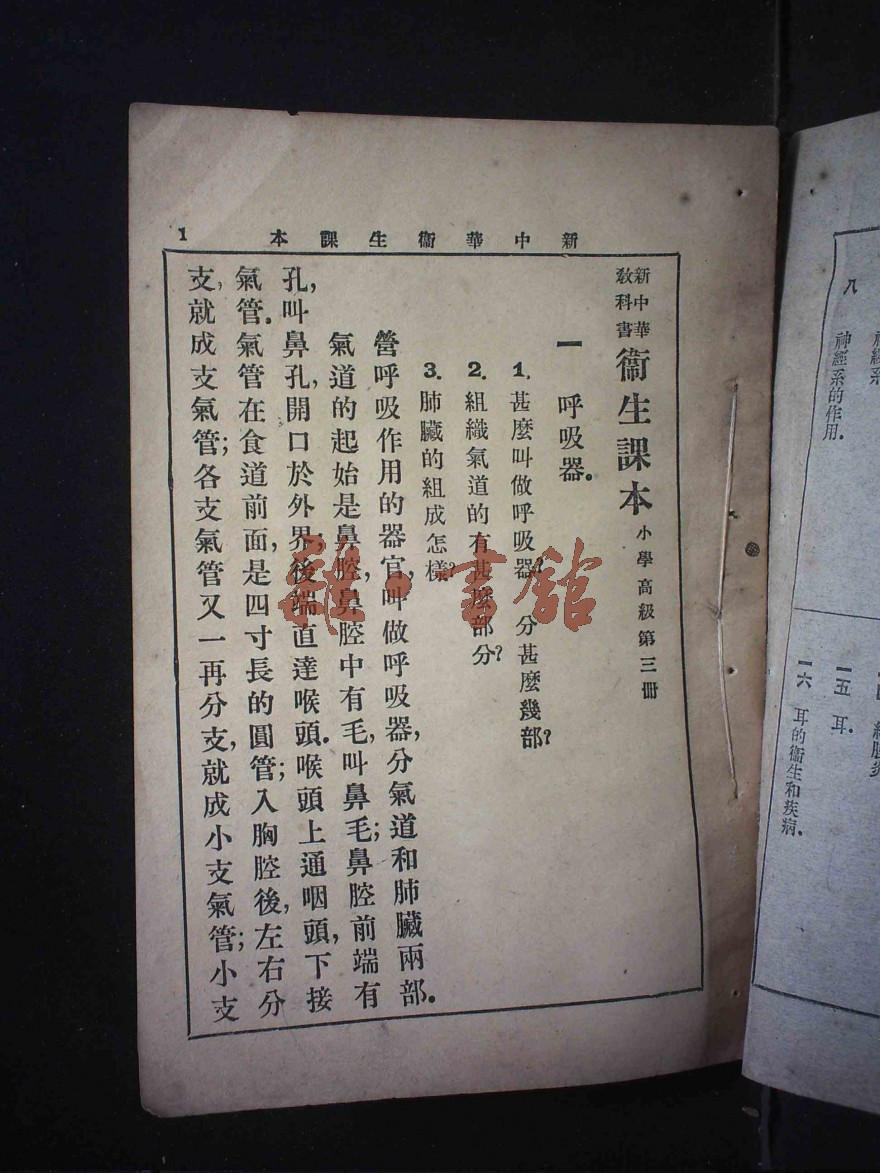 新中華衞生課本 1
新中華
敎科書
衞生課本 小學高級第三冊
一 呼吸器.
1. 甚麼叫做呼吸器?分甚麼幾部?
2. 組織氣道的有甚麼部分?
3. 肺臟的組成怎樣?
營呼吸作用的器官,叫做呼吸器,分氣道和肺臟兩部.
氣道的起始是鼻腔,鼻腔中有毛,叫鼻毛;鼻腔前端有
孔,叫鼻孔,開口於外界;後端直達喉頭.喉頭上通咽頭,下接
氣管.氣管在食道前面,是四寸長的圓管;入胸腔後,左右分
支,就成支氣管;各支氣管又一再分支,就成小支氣管;小支
雜·書館
八 神經系的作用.
一五 耳.
一六 耳的衞生和疾病.